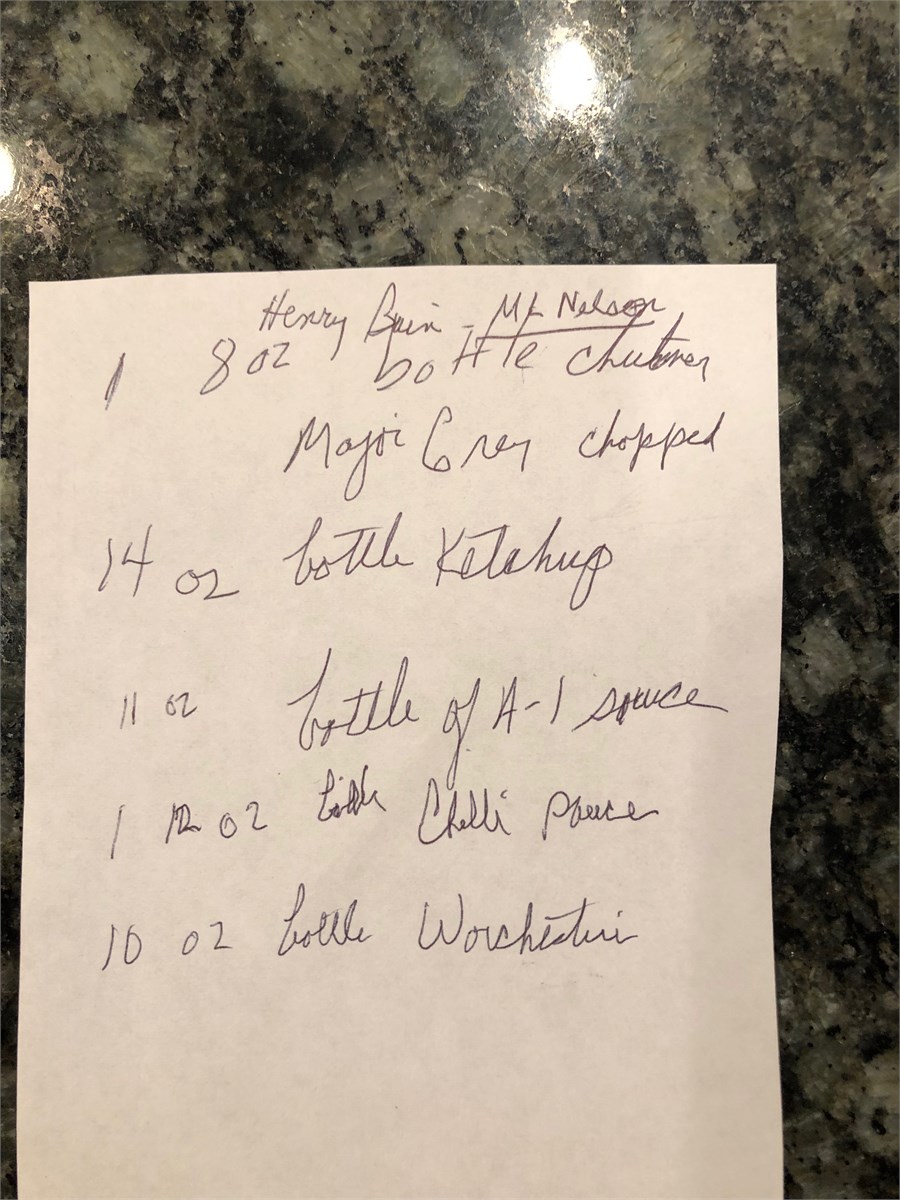 Henry Bain - ML Nelson
1 8 oz bottle chutney
Major Grey chopped
14 oz bottle Ketchup
11 oz bottle of A-1 sauce
1 12 oz bottle Chilli sauce
10 oz bottle Worchestiri